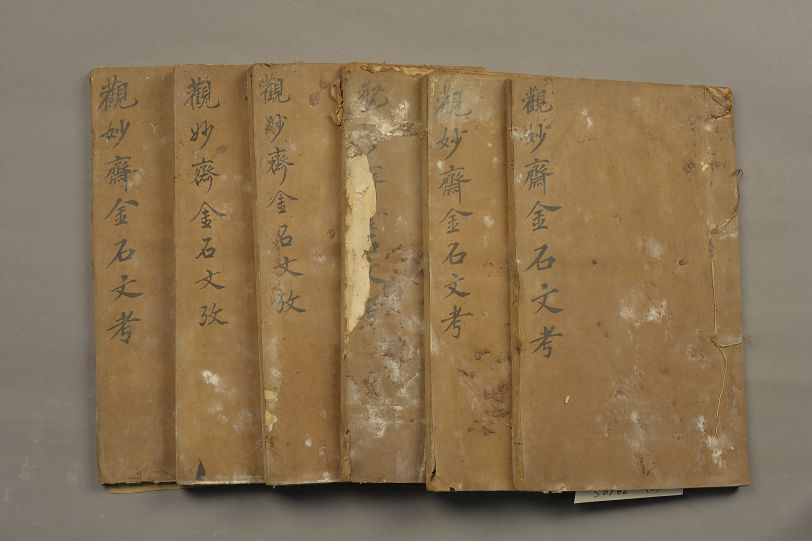 觀妙齋金石文考
觀妙齋金石文考
觀
考
觀妙齋金石文攷
觀妙齋金石文攷
觀妙齋金石文考